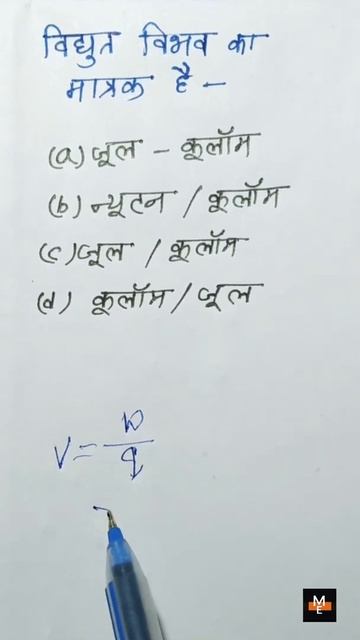 विद्युत विभव का
मात्रक है –
(a) जूल – कूलॉम
(b) न्यूटन / कूलॉम
(c) जूल / कूलॉम
(d) कूलॉम / जूल
V = W
q
M
E